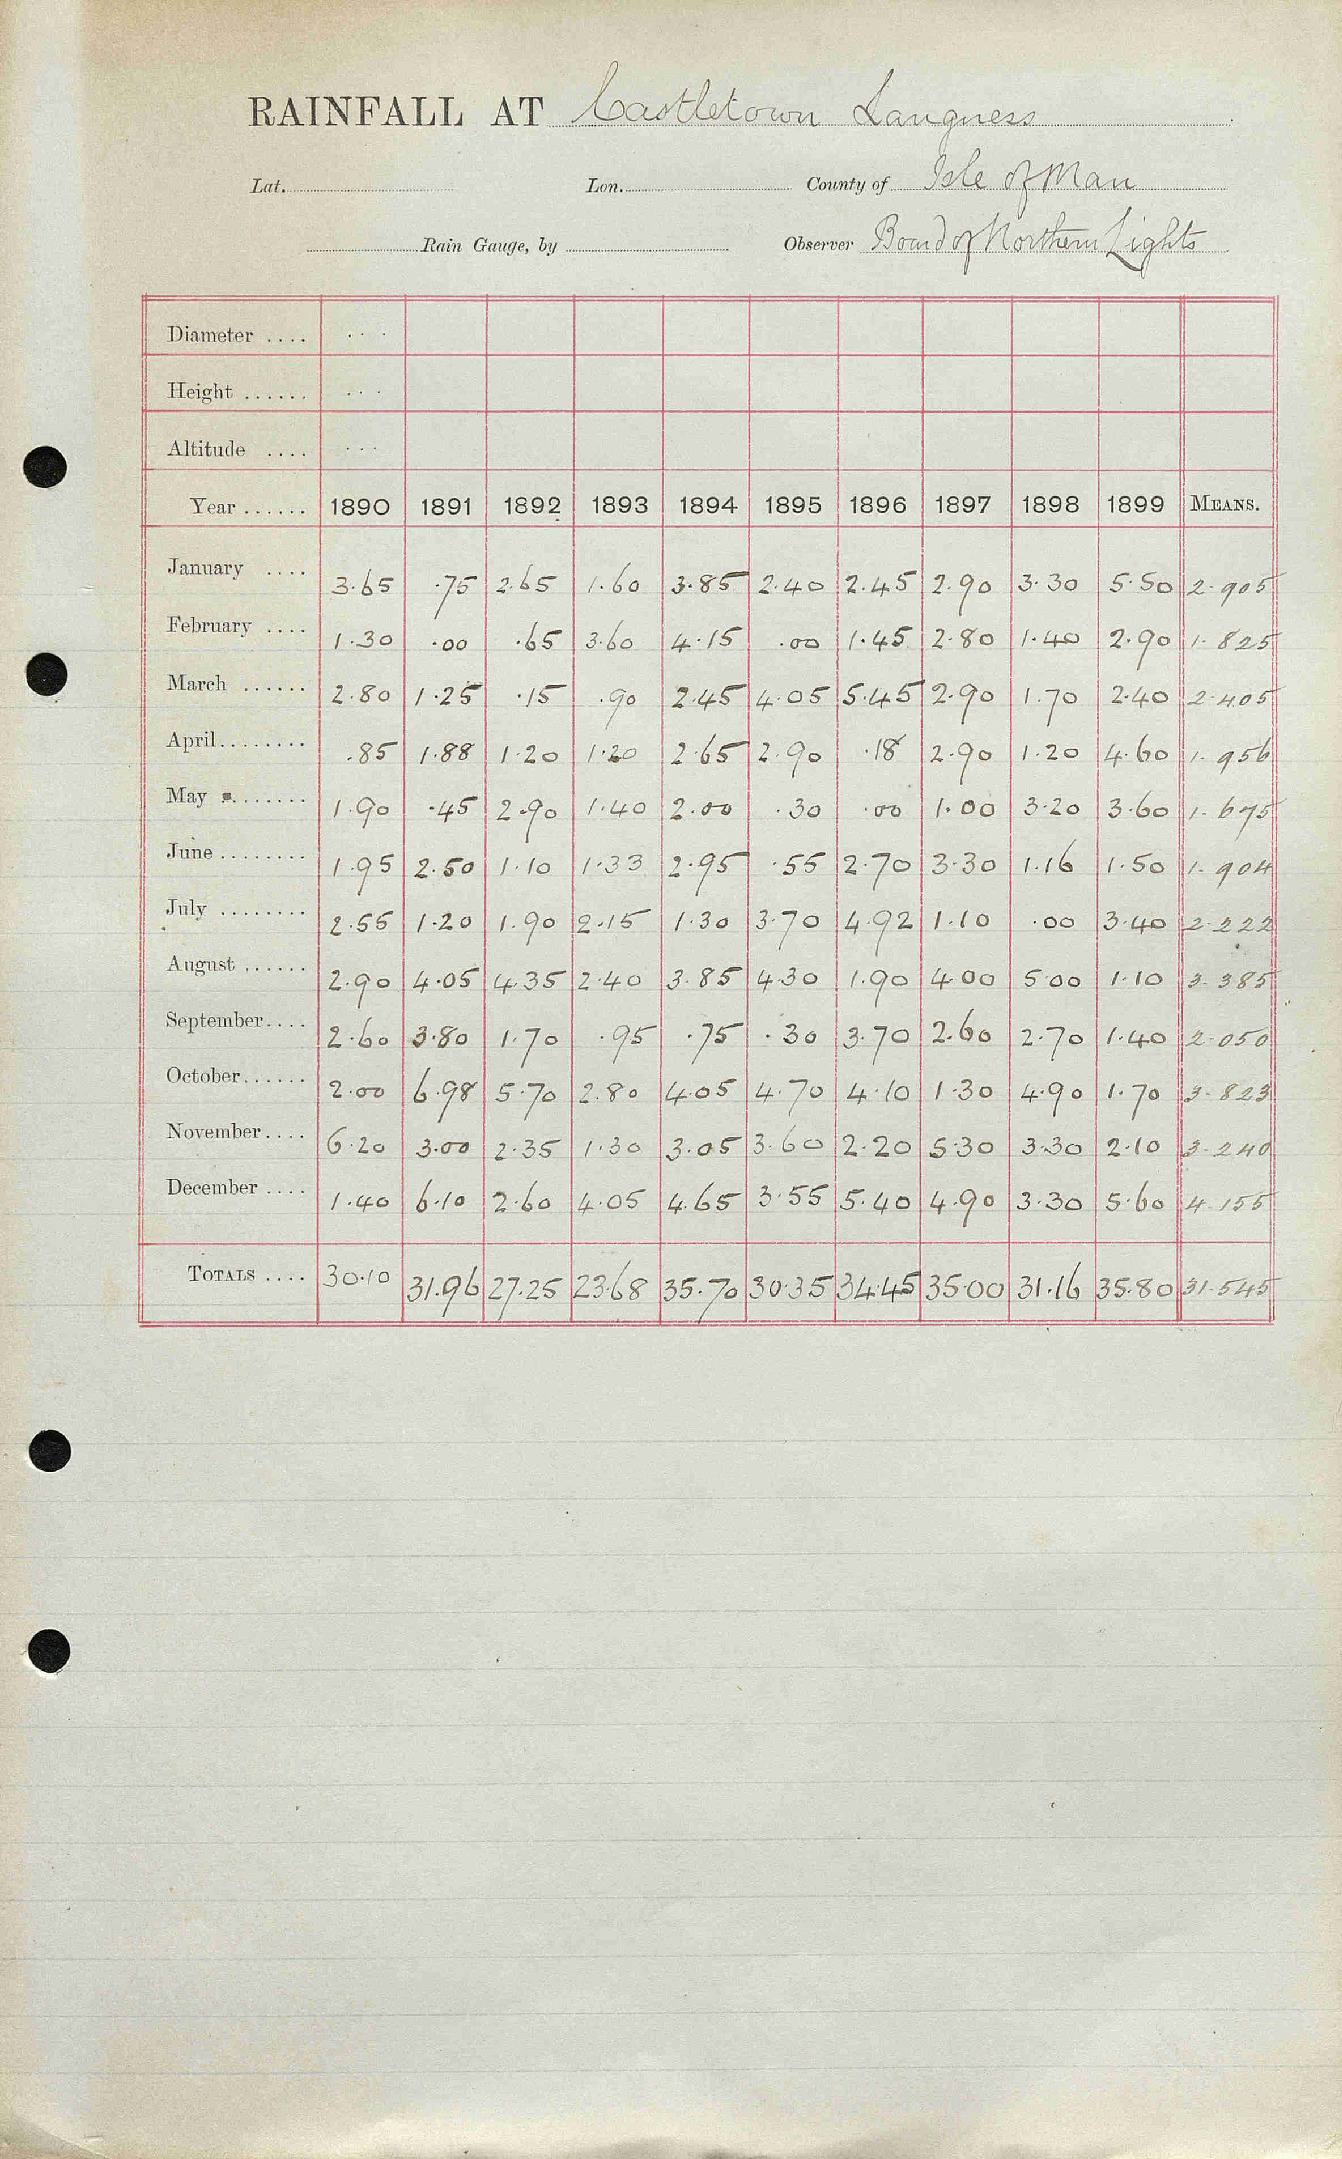 RAINFALL AT Castletown Langness
Lat. Lon. County of Isle of Man
Rain Gauge, by Observer Board of Northern Lights
Diameter .... . . .
Height ...... . . .
Altitude .... . . .
Year ...... 1890 1891 1892 1893 1894 1895 1896 1897 1898 1899 MEANS.
January .... 3.65 .75 2.65 1.60 3.85 2.40 2.45 2.90 3.30 5.50 2.905
February .... 1.30 .00 .65 3.60 4.15 .00 1.45 2.80 1.40 2.90 1.825
March ...... 2.80 1.25 .15 .90 2.45 4.05 5.45 2.90 1.70 2.40 2.405
April........ .85 1.88 1.20 1.20 2.65 2.90 .18 2.90 1.20 4.60 1.956
May ........ 1.90 .45 2.90 1.40 2.00 .30 .00 1.00 3.20 3.60 1.675
June ........ 1.95 2.50 1.10 1.33 2.95 .55 2.70 3.30 1.16 1.50 1.904
July ........ 2.55 1.20 1.90 2.15 1.30 3.70 4.92 1.10 .00 3.40 2.222
August ...... 2.90 4.05 4.35 2.40 3.85 4.30 1.90 4.00 5.00 1.10 3.385
September.... 2.60 3.80 1.70 .95 .75 .30 3.70 2.60 2.70 1.40 2.050
October...... 2.00 6.98 5.70 2.80 4.05 4.70 4.10 1.30 4.90 1.70 3.823
November.... 6.20 3.00 2.35 1.30 3.05 3.60 2.20 5.30 3.30 2.10 3.240
December .... 1.40 6.10 2.60 4.05 4.65 3.55 5.40 4.90 3.30 5.60 4.155
TOTALS .... 30.10 31.96 27.25 23.68 35.70 30.35 34.45 35.00 31.16 35.80 31.545